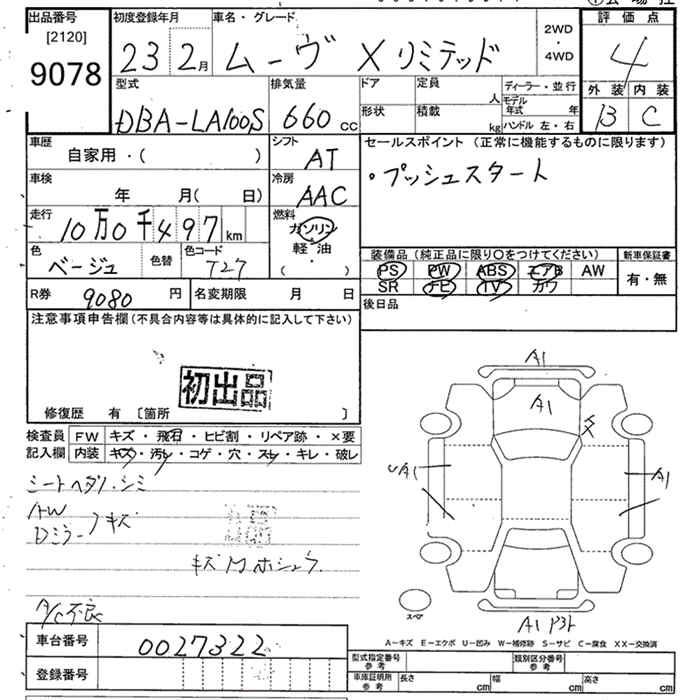 出品番号
[2120]
9078
初度登録年月
23 2月
車名・グレード
ムーヴ Xリミテッド
2WD
・
4WD
評価点
4
外装 内装
B C
型式
DBA-LA100S
排気量
660 cc
ドア
形状
定員
人
積載
kg
ディーラー・並行
モデル
年式 年
ハンドル 左・右
車歴
自家用・( )
シフト
AT
セールスポイント (正常に機能するものに限ります)
・プッシュスタート
車検
年 月( 日)
冷房
AAC
走行
10万0千497 km
燃料
ガソリン
軽・油
( ・ )
色
ベージュ
色替
色コード
T27
装備品 (純正品に限り○をつけてください)
PS PW ABS エアB AW
SR ナビ TV カワ
新車保証書
有・無
R券
9080 円
名変期限 月 日
後日品
注意事項申告欄 (不具合内容等は具体的に記入して下さい)
初出品
修復歴 有 [箇所 ]
検査員
記入欄
FW キズ・飛石・ヒビ割・リペア跡・×要
内装 キズ・汚レ・コゲ・穴・スレ・キレ・破レ
シートヘタリ・シミ
AW
Dミラー
キズ
A/C不良
A1
A1
UA1
A1
A1
スペア
A-キズ E-エクボ U-凹み W-補修跡 S-サビ C-腐食 XX-交換済
車台番号
0027322
登録番号
型式指定番号
参考
類別区分番号
参考
車庫証明所
参考
長さ cm
幅 cm
高さ cm